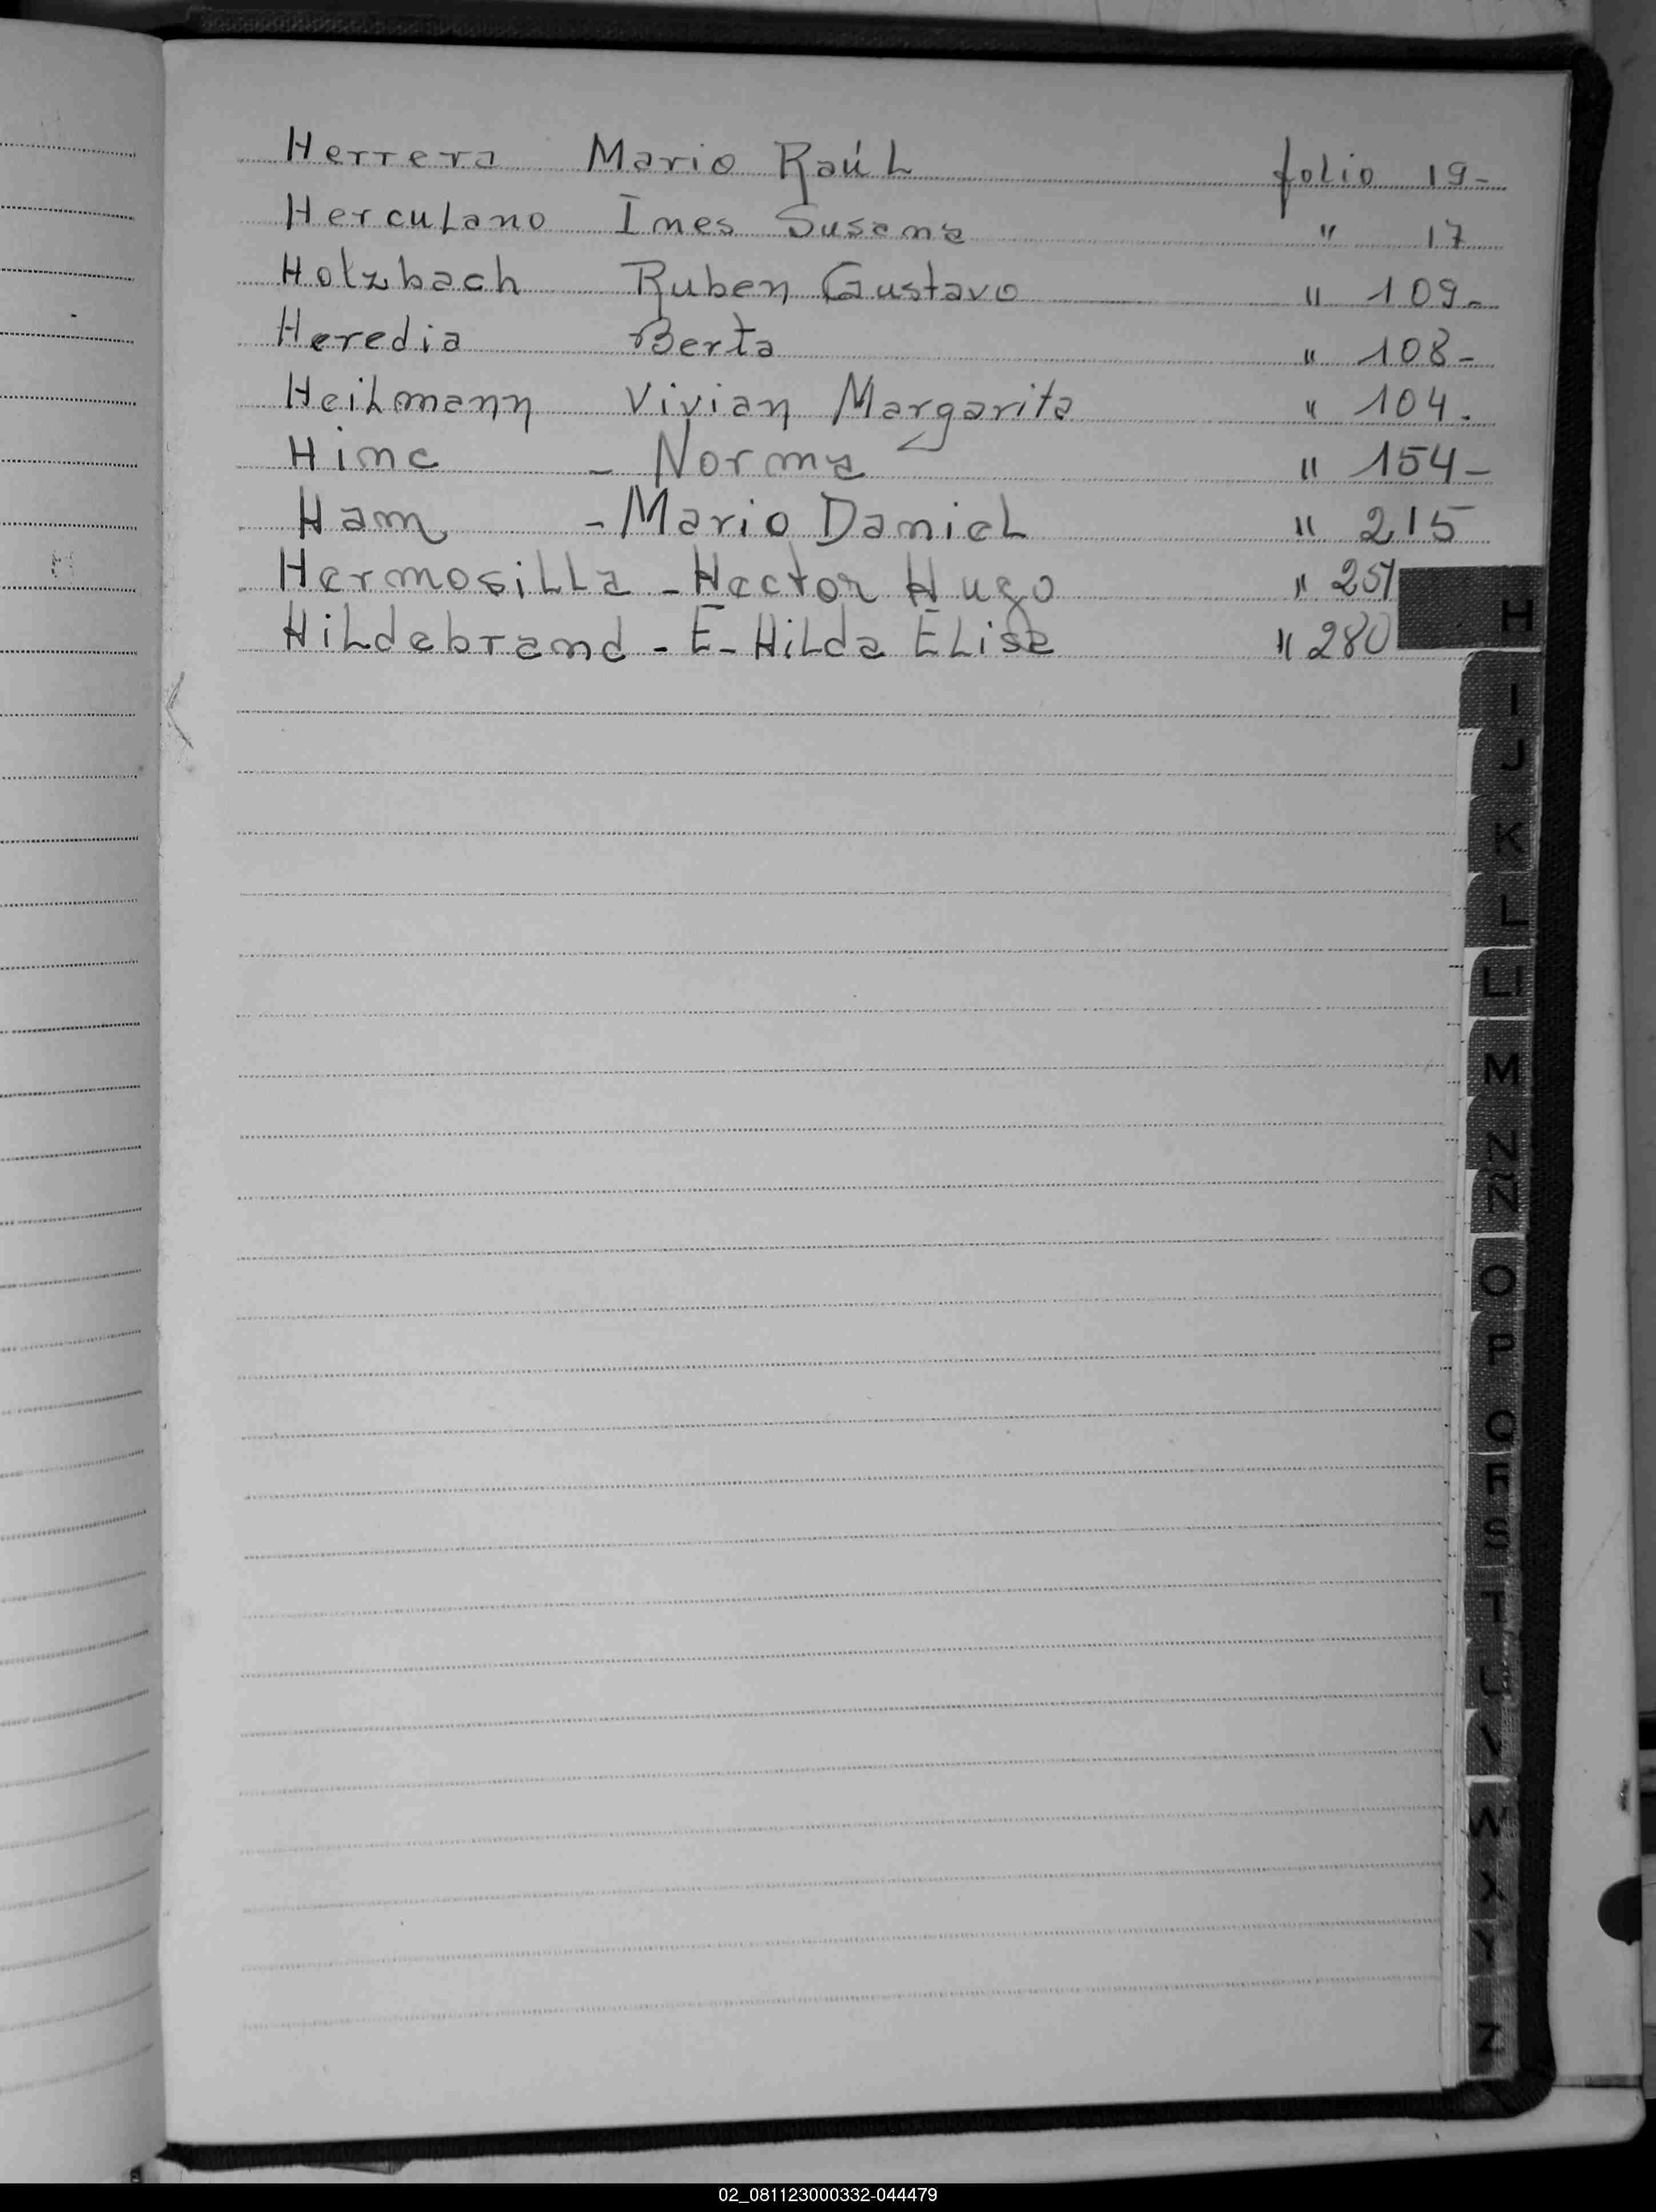 Herrera Mario Raúl folio 19-
Herculano Ines Susana " 17
Holzbach Ruben Gustavo " 109-
Heredia Berta " 108-
Heilmann Vivian Margarita " 104.
Hime - Norma " 154-
Ham - Mario Daniel " 215
Hermosilla - Hector Hugo " 251
Hildebrand - E- Hilda Elisa " 280
H
I
J
K
L
Ll
M
N
Ñ
O
P
Q
R
S
T
U
V
W
X
Y
Z
02_081123000332-044479